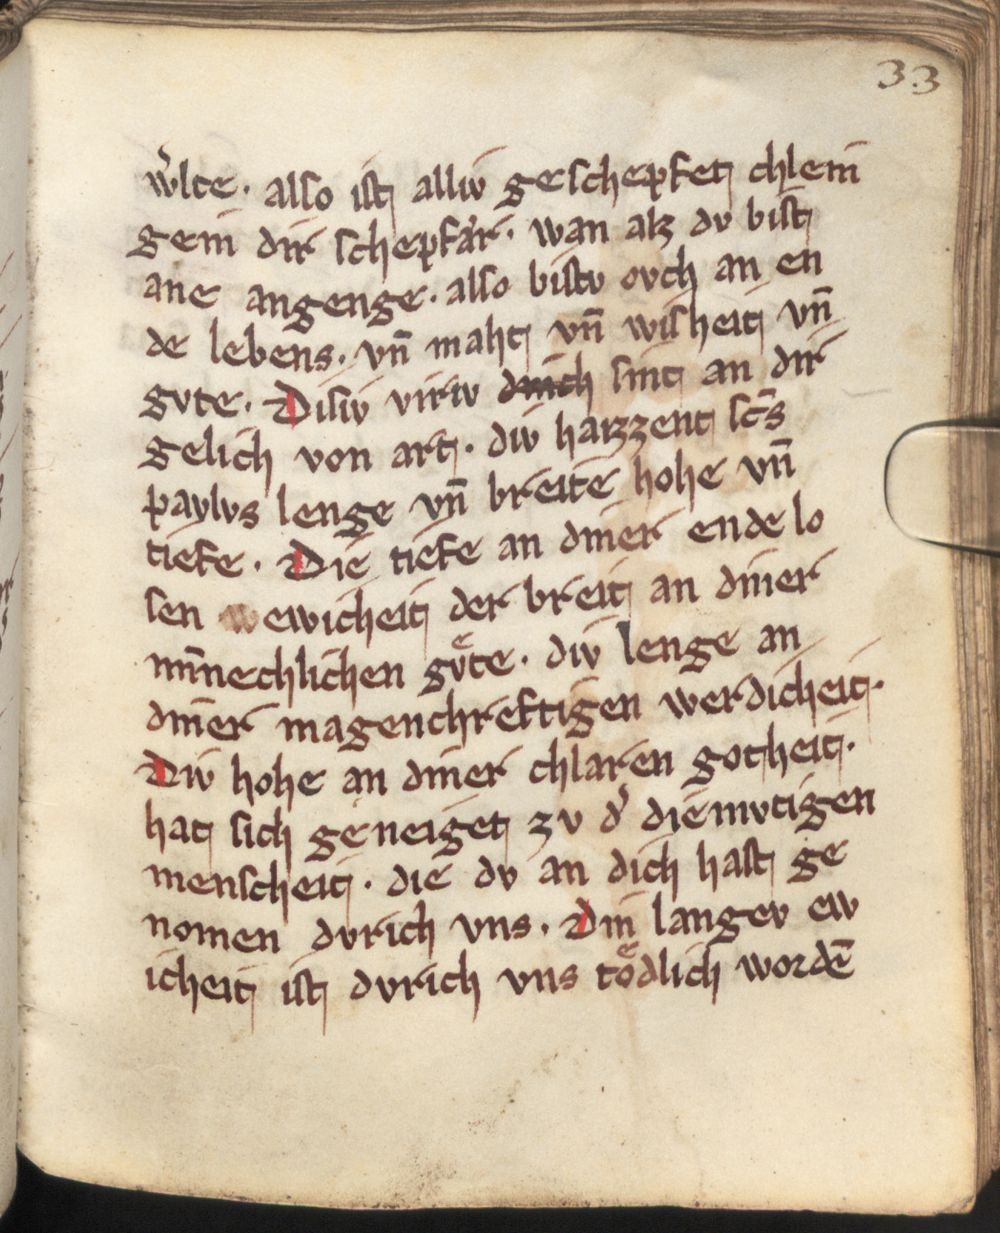 33
w̾lte · also ist alliv geschepfet chlein
gein dir schepfær · wan alz dv bist
ane angenge · also bistv ovch an en
de lebens · vn̄ maht vn̄ wisheit vn̄
gvte · Disiv viriv sint an dir
gelich von art · div haizzent sc̄s
pavlvs lenge vn̄ breite hohe vn̄
tiefe · Die tiefe an diner ende lo
sen ewicheit der breit an diner
minnechlichen gvͤte · div lenge an
diner magenchreftigen werdicheit ·
Div hohe an diner chlaren gotheit ·
hat sich geneiget zv d̾ diemvtigen
menscheit · die dv an dich hast ge
nomen dvrich vns · Din langev ew
icheit ist dvrich vns toͤdlich wordē